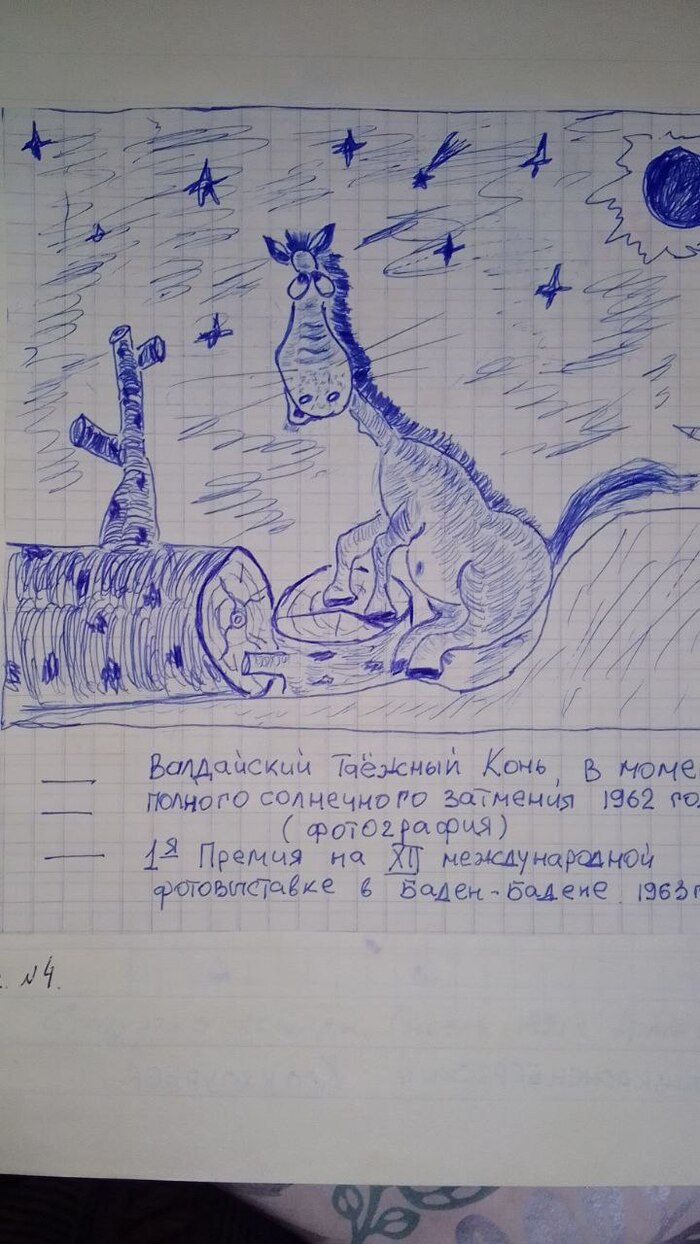 Валдайский Таёжный Конь, в моме
полного солнечного затмения 1962 го
(фотография)
1я Премия на XII международной
фотовыставке в Баден-Бадене 1963г
. №4.